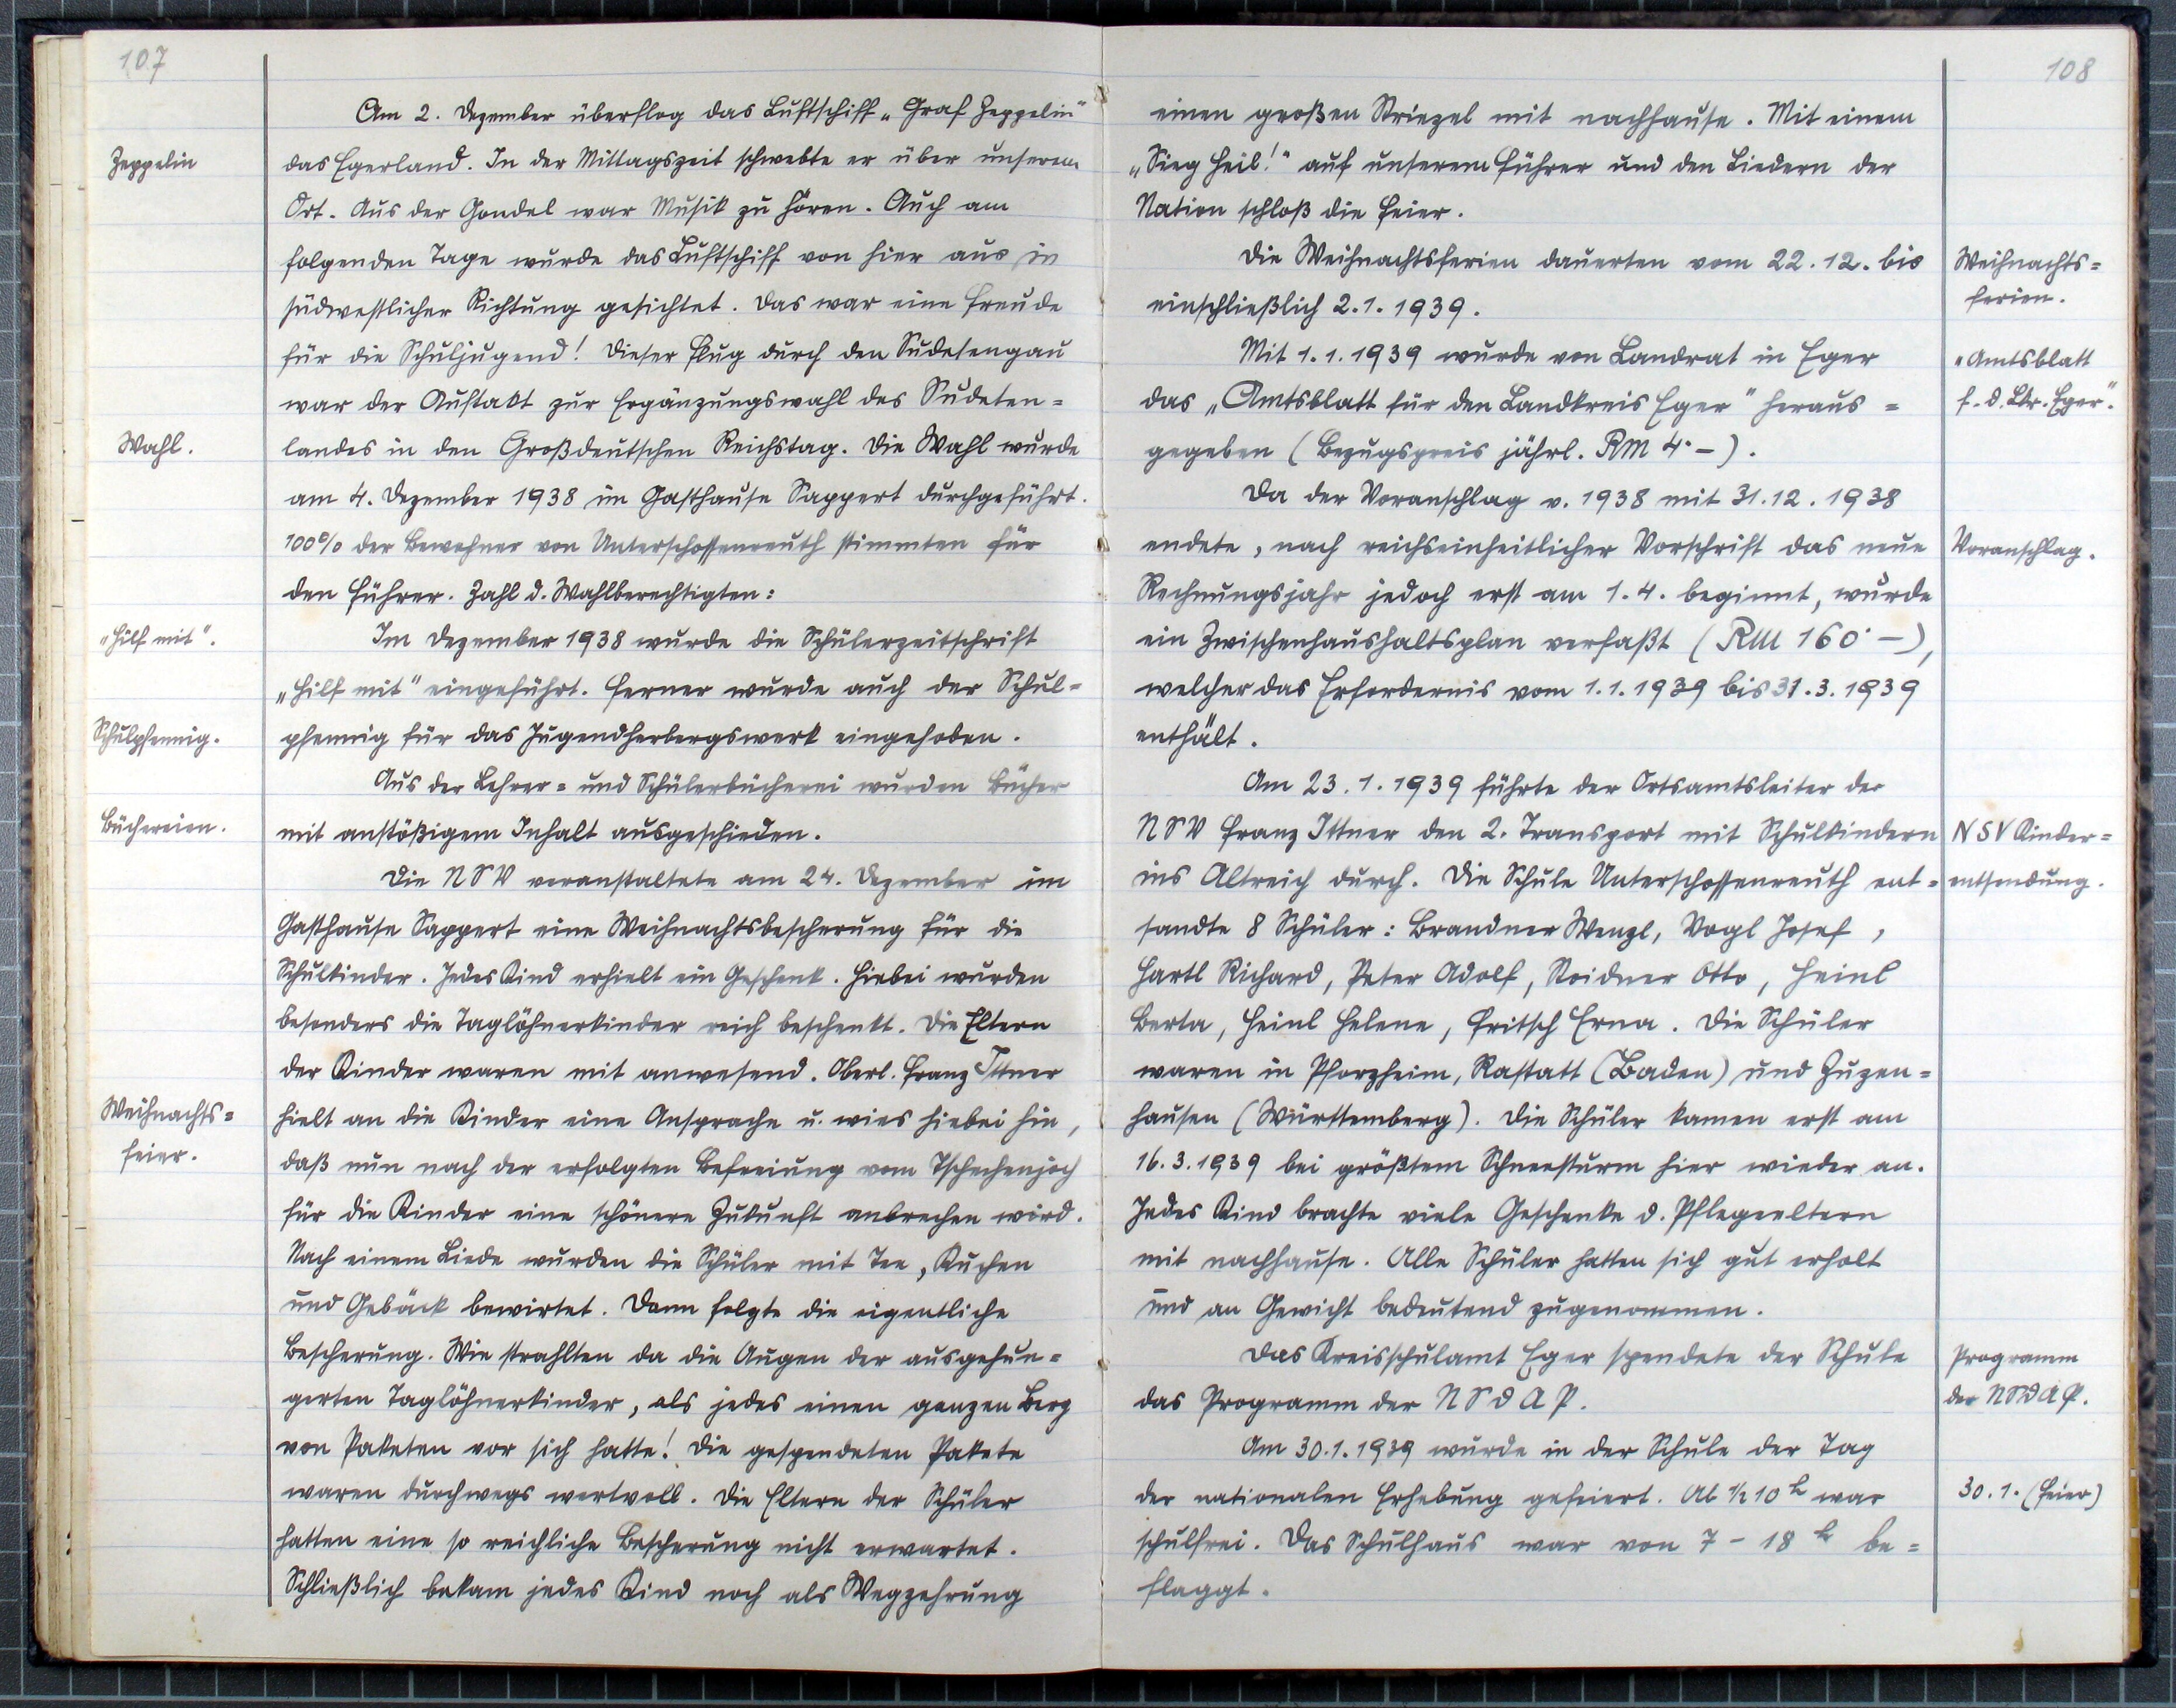 107
Am 2. Dezember überflog das Luftschiff „Graf Zeppelin"
Zeppelin
das Egerland. In der Mittagszeit schwebte er über unserem
Ort. Aus der Gondel war Musik zu hören. Auch am
folgenden Tage wurde das Luftschiff von hier aus in
südwestlicher Richtung gesichtet. Das war eine Freude
für die Schuljugend! Dieser Flug durch den Sudetengau
war der Auftakt zur Ergänzungswahl des Sudeten=
Wahl.
landes in den Großdeutschen Reichstag. Die Wahl wurde
am 4. Dezember 1938 im Gasthause Sappert durchgeführt.
100% der Bewohner von Unterschossenreuth stimmten für
den Führer. Zahl d. Wahlberechtigten:
„Hilf mit".
Im Dezember 1938 wurde die Schülerzeitschrift
„Hilf mit" eingeführt. Ferner wurde auch der Schul=
Schulpfennig.
pfennig für das Jugendherbergswerk eingehoben.
Aus der Lehrer= und Schülerbücherei wurden Bücher
Büchereien.
mit anstößigem Inhalt ausgeschieden.
Die NSV veranstaltete am 24. Dezember im
Gasthause Sappert eine Weihnachtsbescherung für die
Schulkinder. Jedes Kind erhielt ein Geschenk. Hiebei wurden
besonders die Taglöhnerkinder reich beschenkt. Die Eltern
der Kinder waren mit anwesend. Oberl. Franz Ittner
Weihnachts=
feier.
hielt an die Kinder eine Ansprache u. wies hiebei hin,
daß nun nach der erfolgten Befreiung vom Tschechenjoch
für die Kinder eine schönere Zukunft anbrechen wird.
Nach einem Liede wurden die Schüler mit Tee, Kuchen
und Gebäck bewirtet. Dann folgte die eigentliche
Bescherung. Wie strahlten da die Augen der ausgehun=
gerten Taglöhnerkinder, als jedes einen ganzen Berg
von Paketen vor sich hatte! Die gespendeten Pakete
waren durchwegs wertvoll. Die Eltern der Schüler
hatten eine so reichliche Bescherung nicht erwartet.
Schließlich bekam jedes Kind noch als Wegzehrung
108
einen großen Striezel mit nachhause. Mit einem
„Sieg Heil!" auf unserem Führer und den Liedern der
Nation schloß die Feier.
Die Weihnachtsferien dauerten vom 22.12. bis
Weihnachts=
ferien.
einschließlich 2.1.1939.
Mit 1.1.1939 wurde von Landrat in Eger
„Amtsblatt
f. d. Lkr. Eger".
das „Amtsblatt für den Landkreis Eger" heraus=
gegeben (Bezugspreis jährl. RM 4·–).
Da der Voranschlag v. 1938 mit 31.12.1938
endete, nach reichseinheitlicher Vorschrift das neue
Voranschlag.
Rechnungsjahr jedoch erst am 1.4. beginnt, wurde
ein Zwischenhaushaltsplan verfaßt (RM 160·–),
welcher das Erfordernis vom 1.1.1939 bis 31.3.1939
enthält.
Am 23.1.1939 führte der Ortsamtsleiter der
NSV Franz Ittner den 2. Transport mit Schulkindern
NSV Kinder=
entsendung.
ins Altreich durch. Die Schule Unterschossenreuth ent=
sandte 8 Schüler: Brandner Wenzl, Vogl Josef,
Hartl Richard, Peter Adolf, Stoidner Otto, Heinl
Berta, Heinl Helene, Fritsch Erna. Die Schüler
waren in Pforzheim, Rastatt (Baden) und Zuzen=
hausen (Württemberg). Die Schüler kamen erst am
16.3.1939 bei größtem Schneesturm hier wieder an.
Jedes Kind brachte viele Geschenke d. Pflegeeltern
mit nachhause. Alle Schüler hatten sich gut erholt
und an Gewicht bedeutend zugenommen.
Das Kreisschulamt Eger spendete der Schule
Programm
der NSDAP.
das Programm der NSDAP.
Am 30.1.1939 wurde in der Schule der Tag
der nationalen Erhebung gefeiert. Ab ½10 h war
30.1. (Feier)
schulfrei. Das Schulhaus war von 7 – 18 h be=
flaggt.